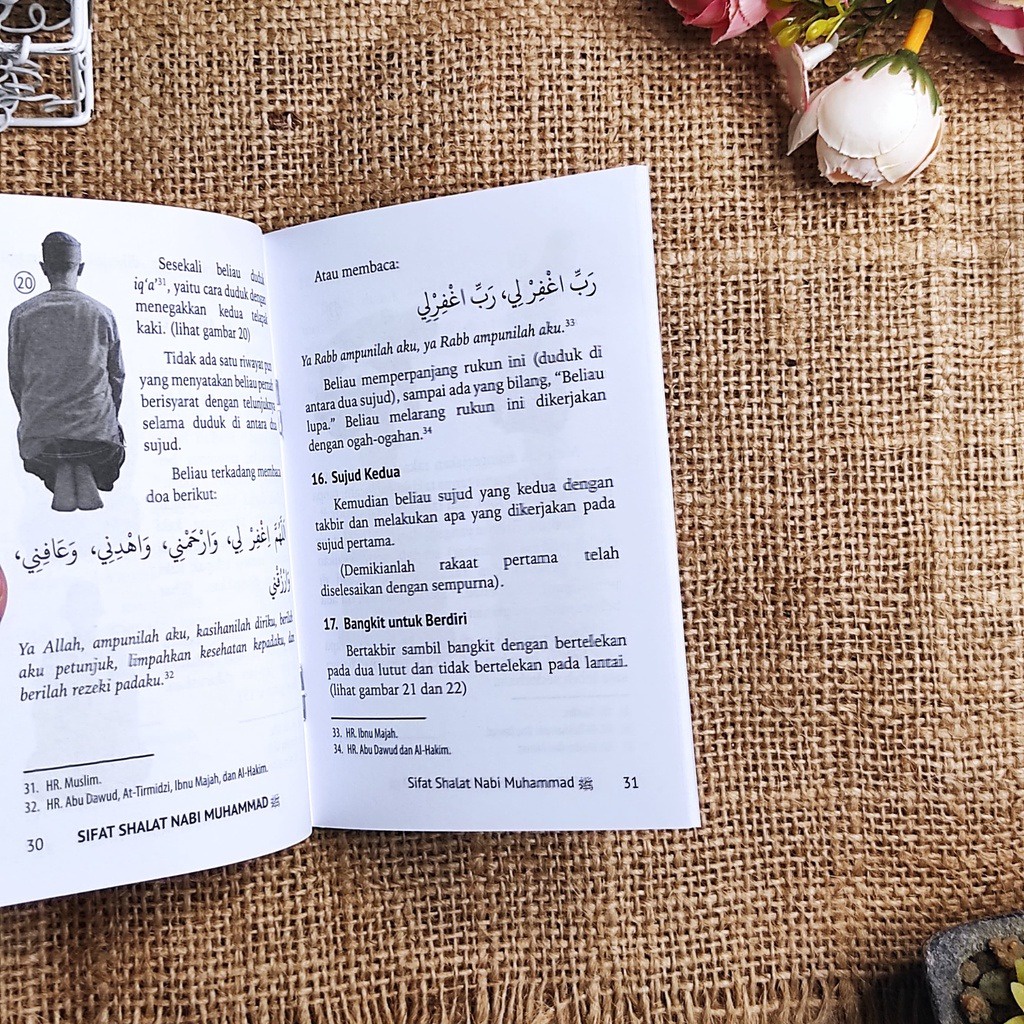 20
Sesekali beliau duduk
iq‘a’³¹, yaitu cara duduk dengan
menegakkan kedua telapak
kaki. (lihat gambar 20)
Tidak ada satu riwayat pun
yang menyatakan beliau pernah
berisyarat dengan telunjuknya
selama duduk di antara dua
sujud.
Beliau terkadang membaca
doa berikut:
اَللّٰهُمَّ اِغْفِرْ لِي، وَارْحَمْنِي، وَاهْدِنِي، وَعَافِنِي،
وَارْزُقْنِي
Ya Allah, ampunilah aku, kasihanilah diriku, berilah
aku petunjuk, limpahkan kesehatan kepadaku, dan
berilah rezeki padaku.³²
31. HR. Muslim.
32. HR. Abu Dawud, At-Tirmidzi, Ibnu Majah, dan Al-Hakim.
30 SIFAT SHALAT NABI MUHAMMAD ﷺ
Atau membaca:
رَبِّ اغْفِرْ لِي، رَبِّ اغْفِرْلِي
Ya Rabb ampunilah aku, ya Rabb ampunilah aku.³³
Beliau memperpanjang rukun ini (duduk di
antara dua sujud), sampai ada yang bilang, “Beliau
lupa.” Beliau melarang rukun ini dikerjakan
dengan ogah-ogahan.³⁴
16. Sujud Kedua
Kemudian beliau sujud yang kedua dengan
takbir dan melakukan apa yang dikerjakan pada
sujud pertama.
(Demikianlah rakaat pertama telah
diselesaikan dengan sempurna).
17. Bangkit untuk Berdiri
Bertakbir sambil bangkit dengan bertelekan
pada dua lutut dan tidak bertelekan pada lantai.
(lihat gambar 21 dan 22)
33. HR. Ibnu Majah.
34. HR. Abu Dawud dan Al-Hakim.
Sifat Shalat Nabi Muhammad ﷺ 31